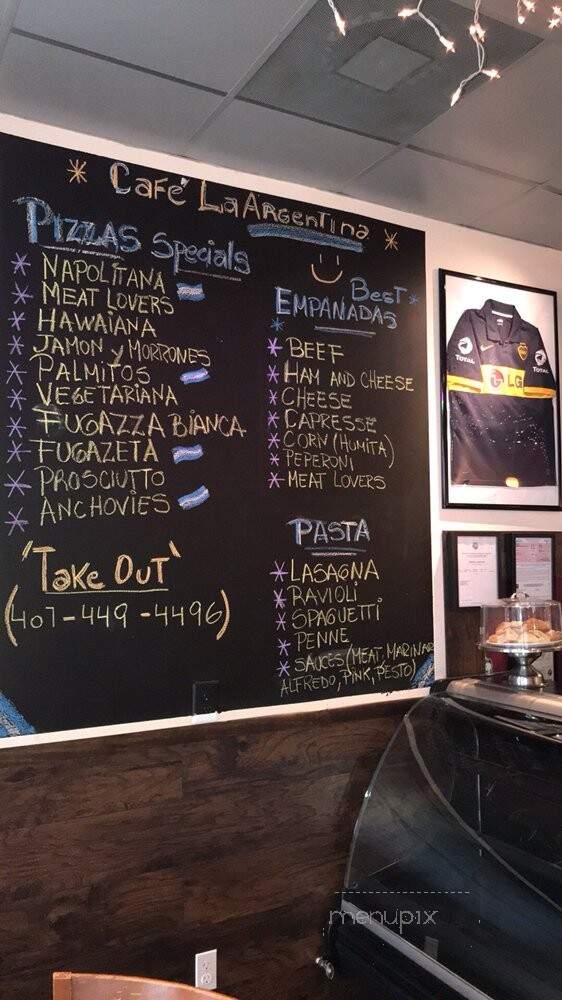 Café La Argentina
Pizzas Specials
Napolitana
Meat Lovers
Hawaiana
Jamon y Morrones
Palmitos
Vegetariana
Fugazza Bianca
Fugazeta
Prosciutto
Anchovies
'Take Out'
(407-449-4496)
Best
Empanadas
Beef
Ham and Cheese
Cheese
Capresse
Corn (Humita)
Peperoni
Meat Lovers
Pasta
Lasagna
Ravioli
Spaguetti
Penne
Sauces (Meat, Marinar
Alfredo, Pink, Pesto)
TOTAL
TOTAL
LG
menupix